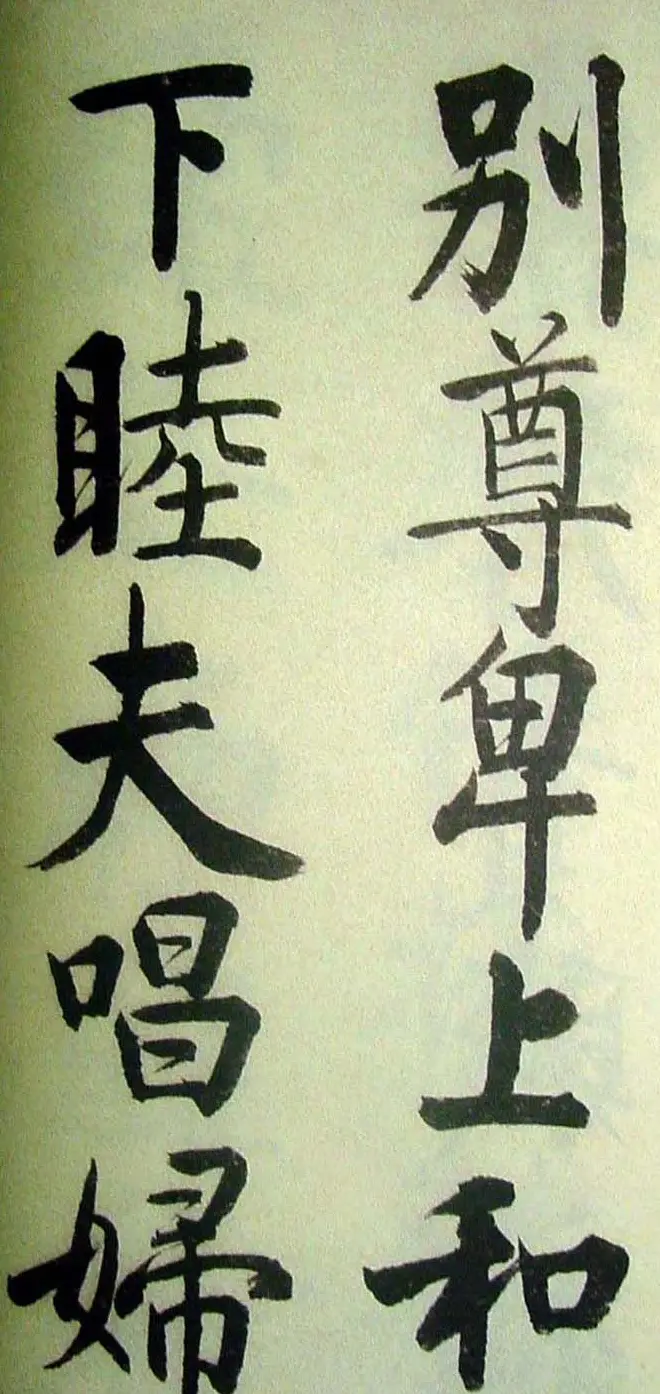 别尊卑上和
下睦夫唱婦